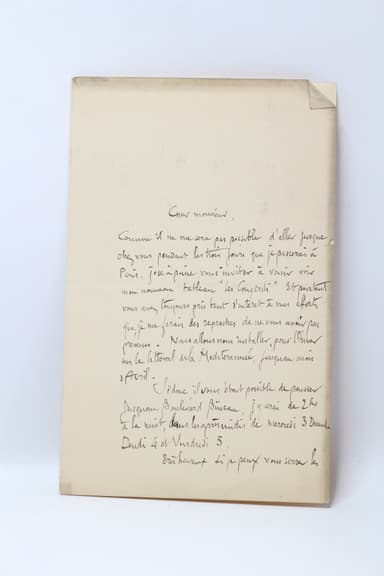 Cher monsieur,
Comme il ne me sera pas possible d'aller jusque
chez vous pendant les trois jours que je passerai à
Paris, j'ose à peine vous inviter à venir voir
mon nouveau tableau "les Conscrits" Et pourtant
vous avez toujours pris tant d'intérêt à nos efforts
que je me ferais des reproches de ne vous avoir pas
prévenu. Nous allons nous installer, pour l'hiver
sur le littoral de la Méditerranée, jusqu'au mois
d'Avril.
Si donc il vous était possible de pousser
jusqu'au Boulevard Bineau, j'y serai de 2 h
à la nuit, dans les après midis de Mercredi 3 Décembre
Jeudi 4 et Vendredi 5.
Très heureux si je peux vous serrer les